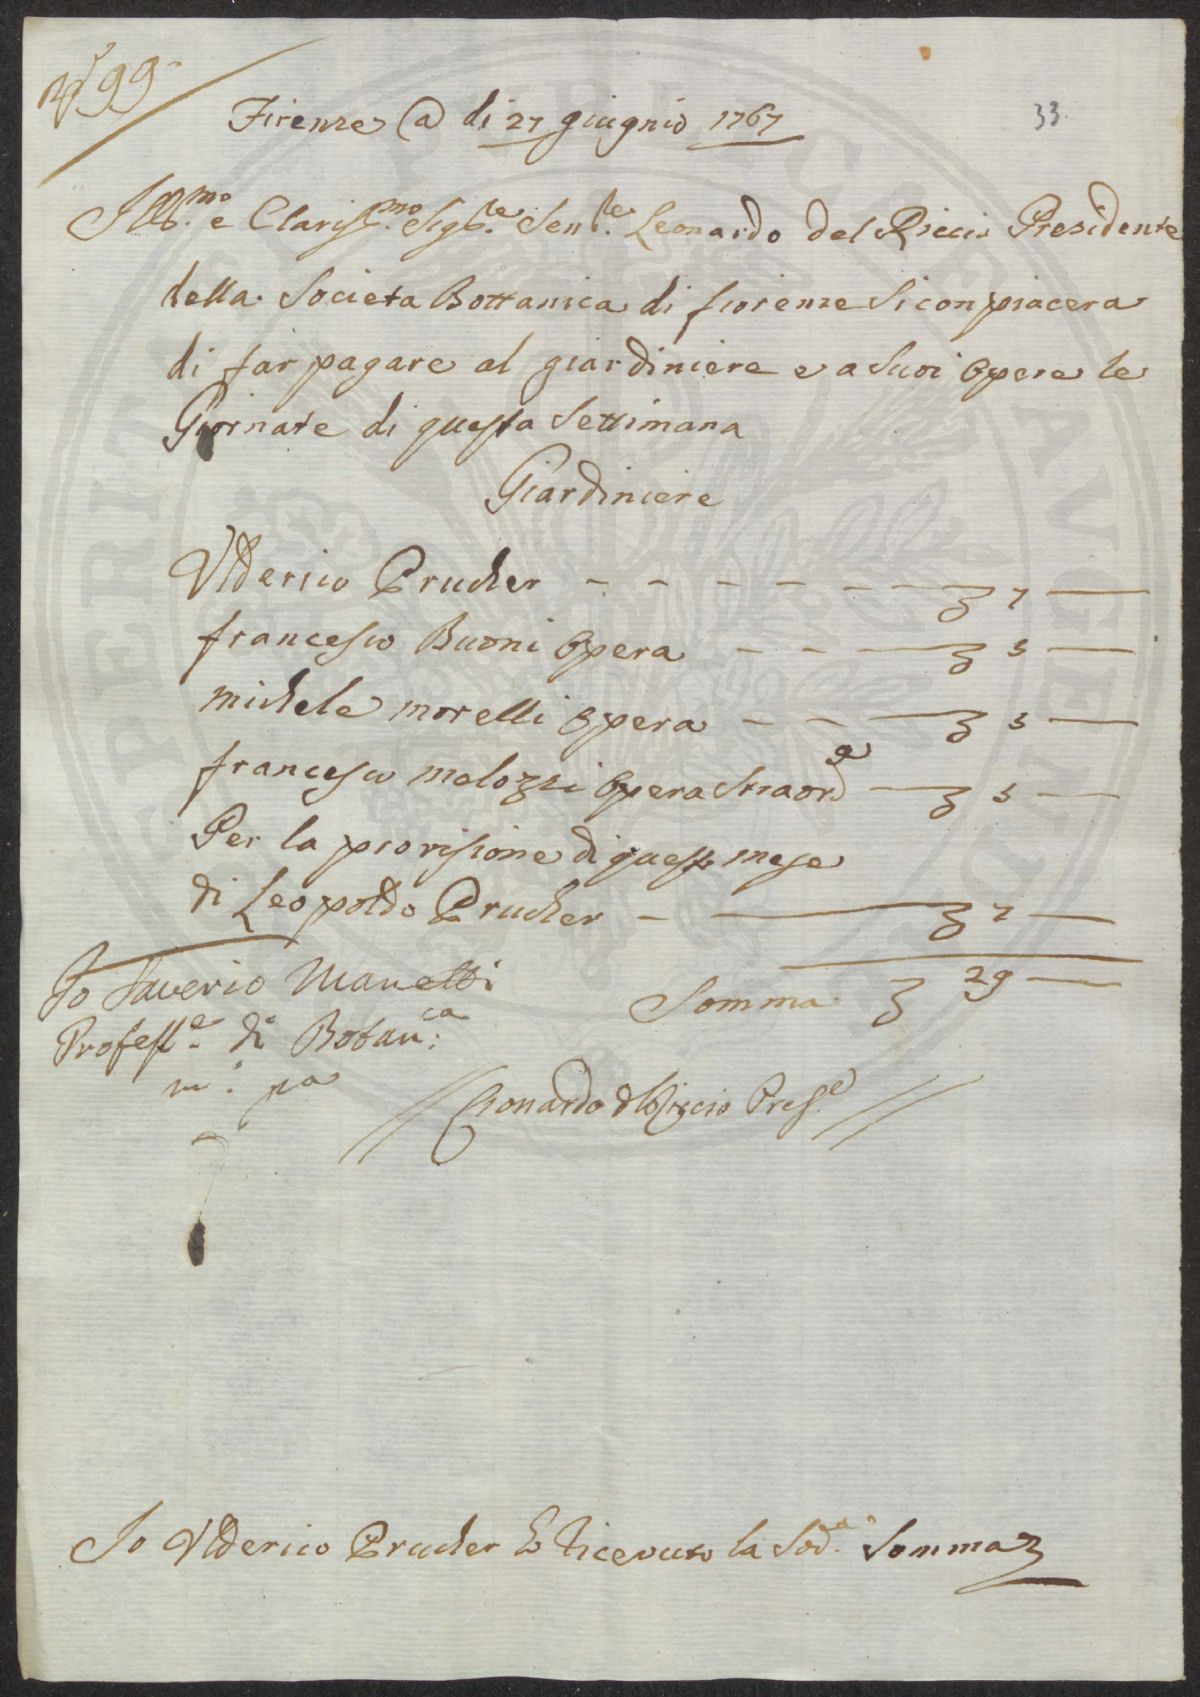 N° 99
33
Firenze @ di 27 giugnio 1767
Ill.mo e Clariss.mo Sig.re Sen.re Leonardo del Riccio Presidente
della Societa Bottanica di fiorenze si conpiacera
di far pagare al giardiniere e a suoi Opere le
Giornate di questa Settimana
Giardiniere
Ulderico Prucher - - - - - — 7 —
francesco Buoni Opera - - - — 5 —
michele morelli Opera - - — 5 —
francesco melozzi Opera Straord.a — 5 —
Per la provisione di questo mese
di Leopoldo Prucher - — 7 —
Somma 29 —
Io Saverio Manetti
Profess.e di Botan:ca
m.o pa
Leonardo del Riccio Pres.e
Io Ulderico Prucher ho ricevuto la Sod.a Somma